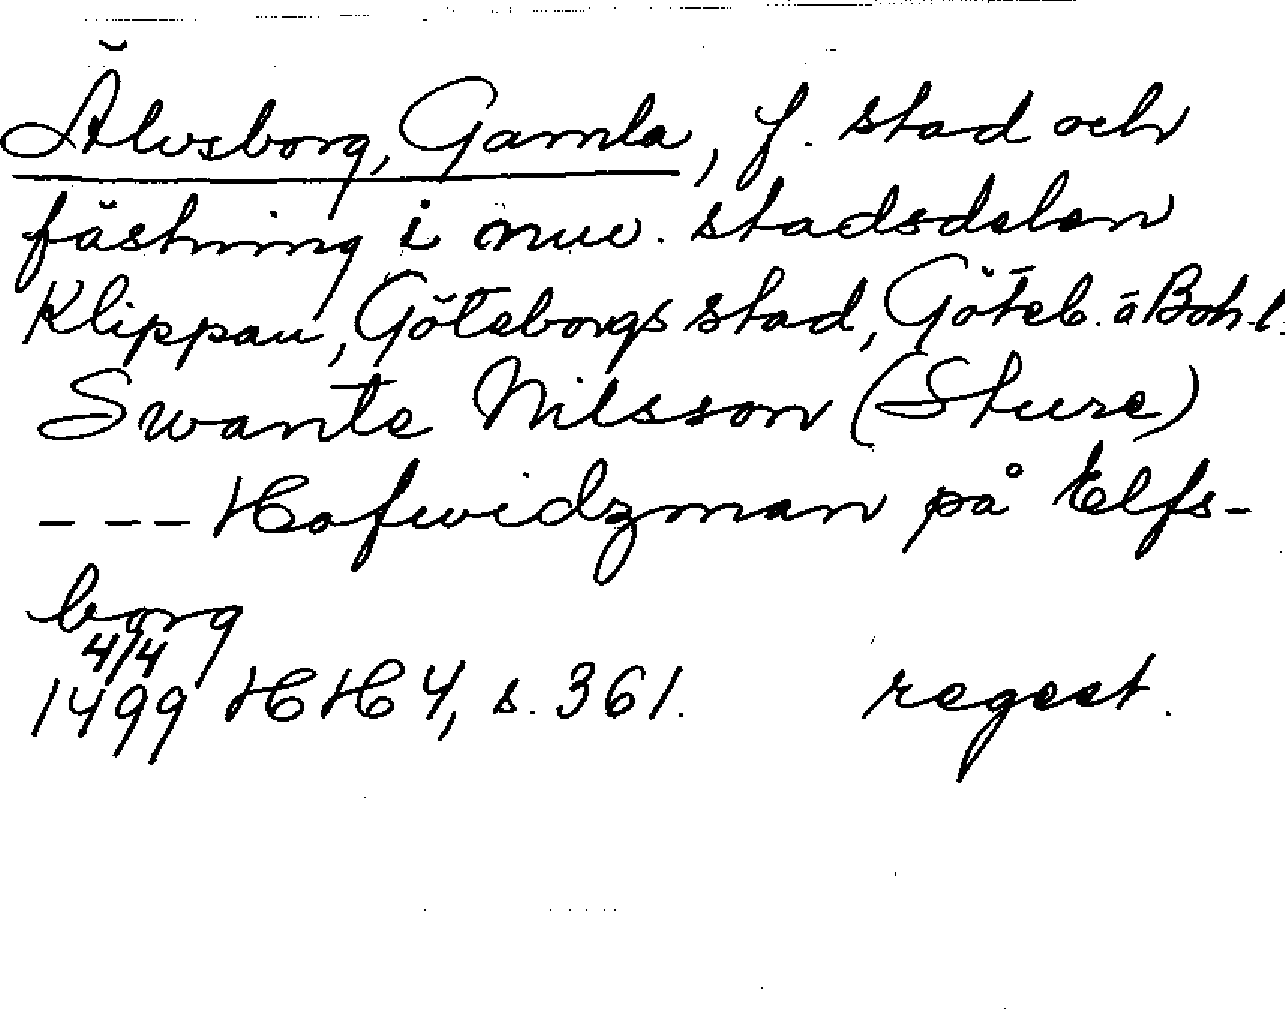 Älvsborg, Gamla, f. stad och
fästning i nuv. stadsdelen
Klippan, Göteborgs stad, Göteb. ä Boh. l.
Swante Nilsson (Sture)
--- Hofwidzman på Elfs-
borg
4/4
1499 HH 4, s. 361. regest.